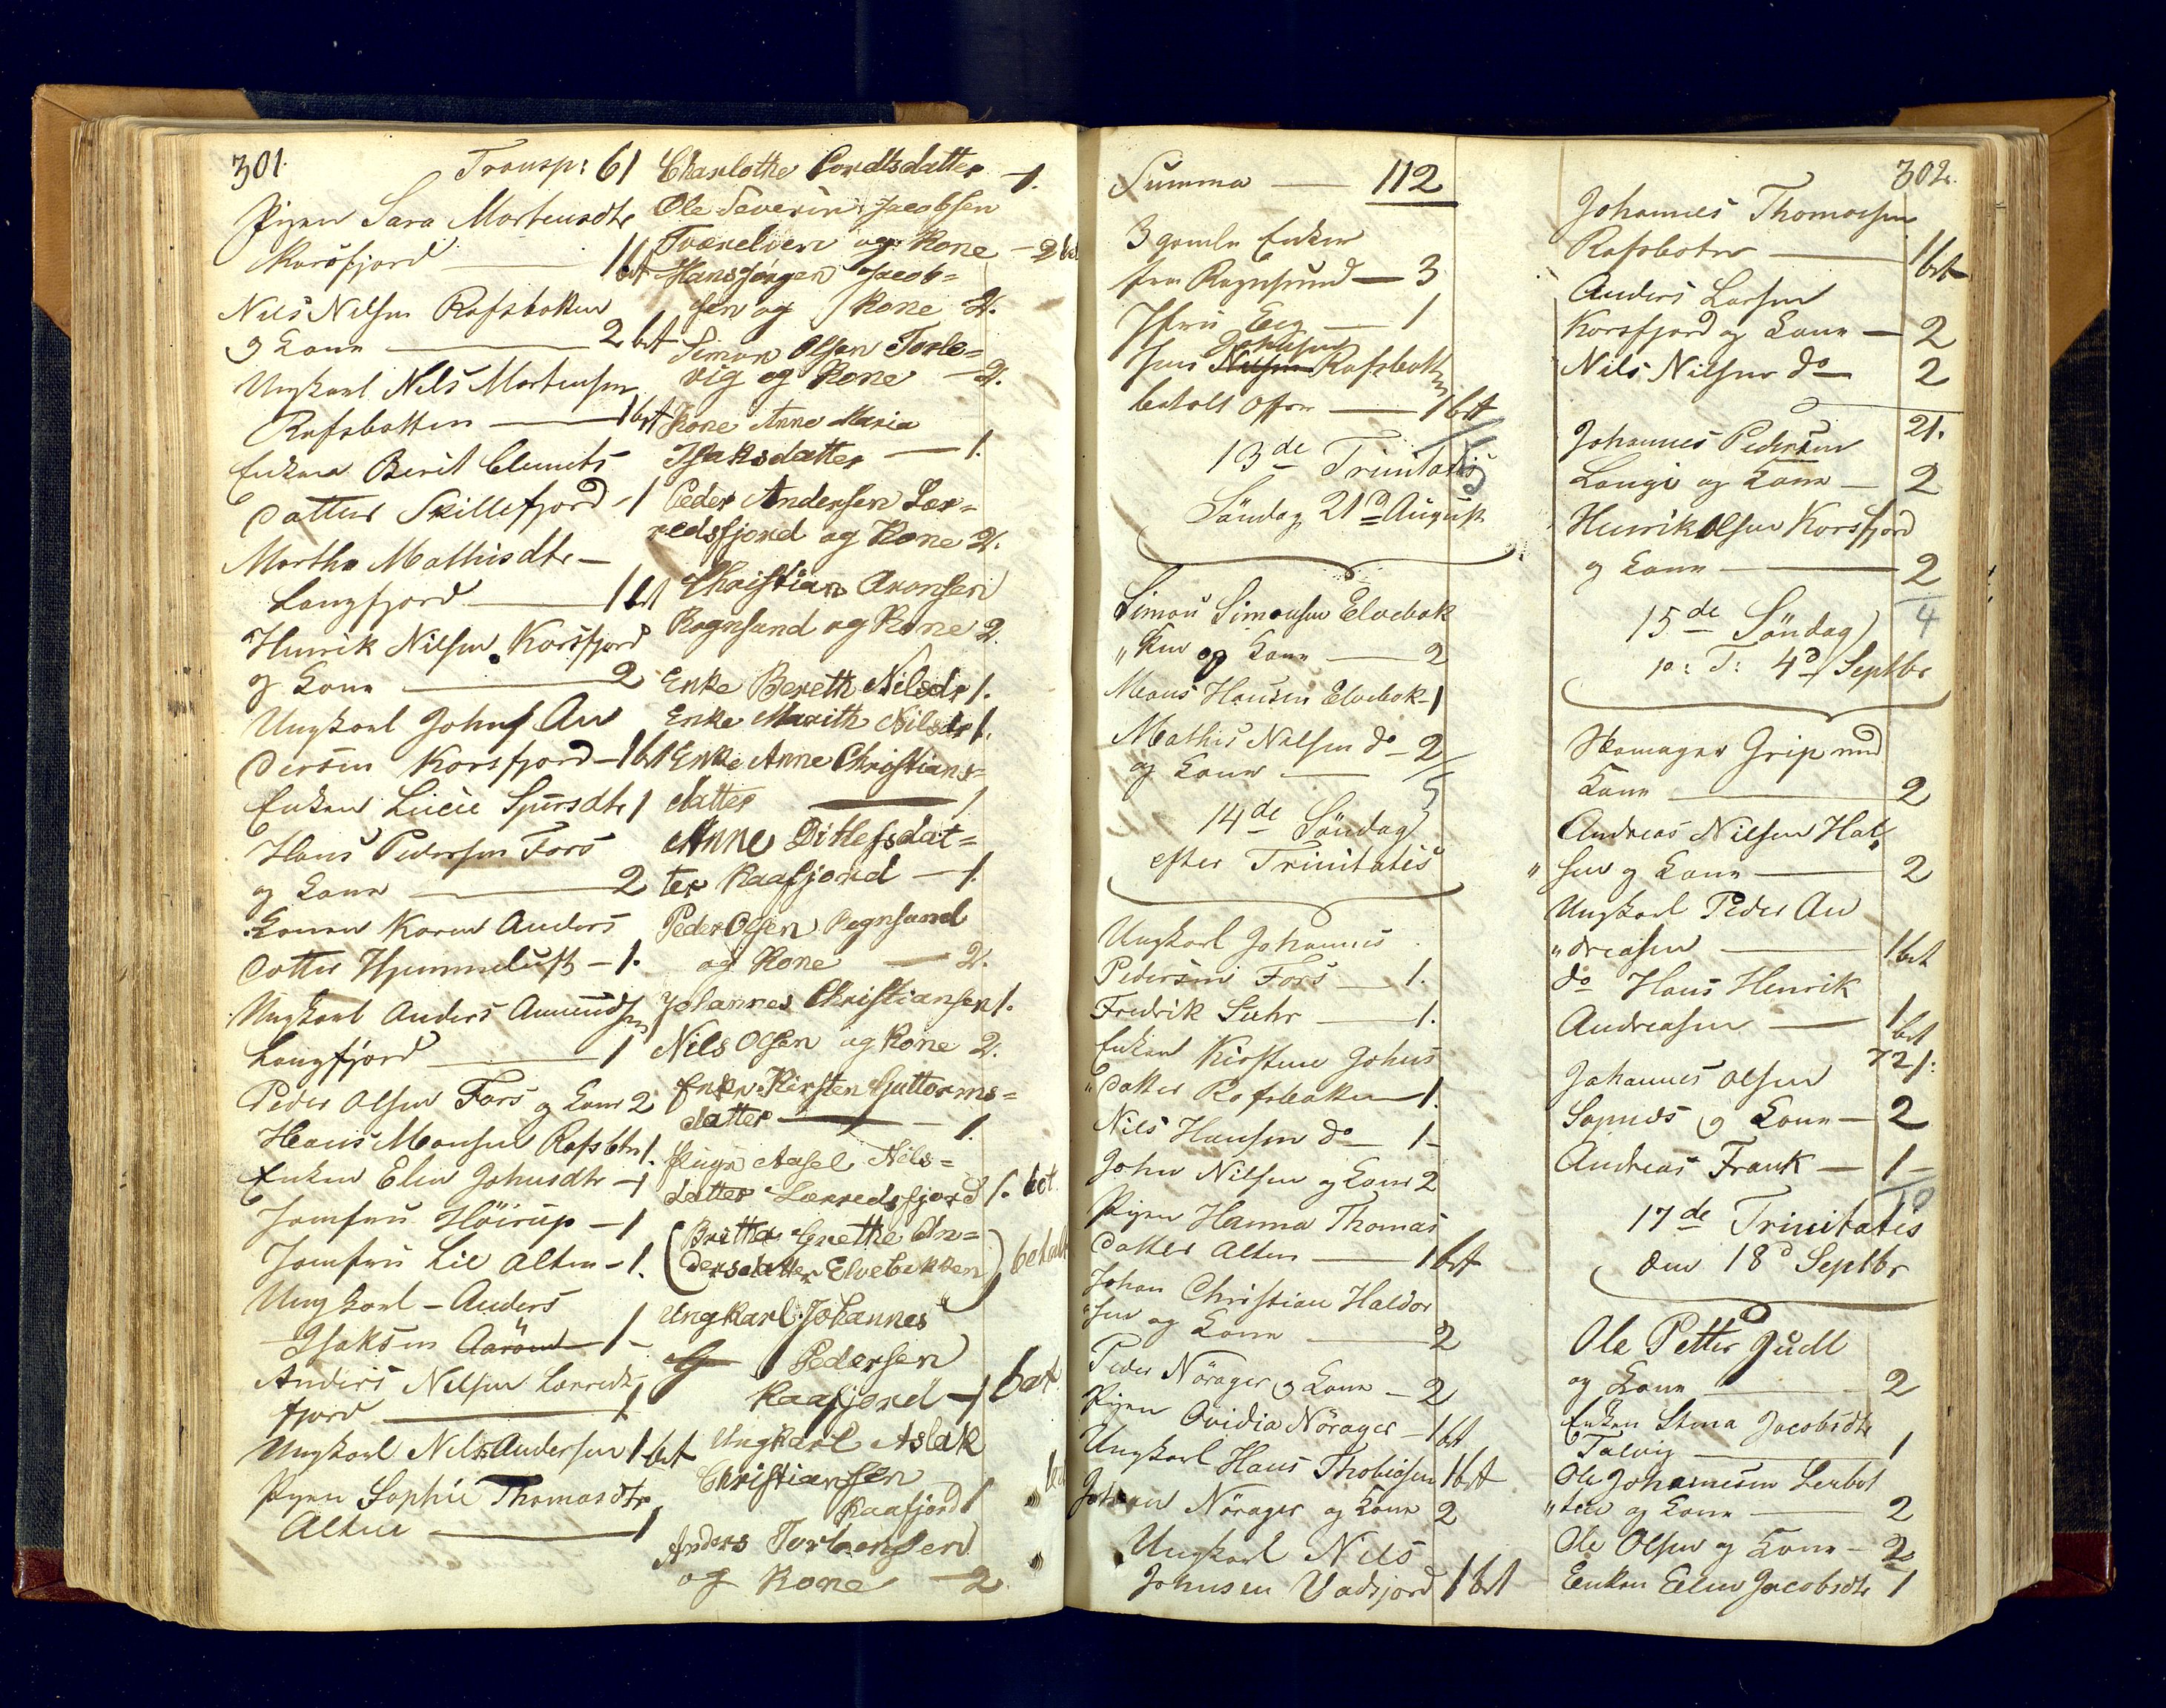 301.
Transp: 61
Pigen Sara Mortensdtr
Korsfjord — 1 bet
Nils Nilsen Rafsbotten
og Kone — 2 bet
Ungkarl Nils Mortensen
Rafsbotten — 1 bet
Enken Berit Clemets
datter Skillefjord - 1
Marthe Mathisdtr —
Langfjord — 1 bet
Henrik Nilsen Korsfjord
og Kone — 2
Ungkarl Johns An
dersen Korsfjord — 1 bet
Enken Lucie Sjursdtr 1
Hans Pedersen Fors
og Kone — 2
Konen Karen Anders
datter Hjemmeluft — 1.
Ungkarl Anders Amundsen
Langfjord — 1
Peder Olsen Fors og Kone 2
Hans Monsen Rafsbtn 1.
Enken Elen Johnsdtr — 1
Jomfru Höirup — 1
Jomfru Lie Alten — 1.
Ungkarl — Anders
Isaksen Aaröen — 1 —
Anders Nilsen Lerreds-
fjord — 1
Ungkarl Nils Andersen 1 bet
Pigen Sophie Thomasdtr
Alten — 1
Charlothe Cordtsdatter — 1.
Ole Severin Jacobsen
Tværelven og Kone — 2 bet
Hans Jörgen Jacob=
sen og Kone 2.
Simon Olsen Torle=
vig og Kone — 2.
Kone Anne Maria
Isaksdatter — 1.
Peder Andersen Lær=
redsfjord og Kone 2.
Christian Aronsen
Rognsund og Kone 2.
Enke Bereth Nilsdr 1.
Enke Marith Nilsdr 1.
Enke Anne Christians=
datter — 1
Anne Ditlefsdat=
ter Kaafjord — 1.
Peder Olsen Rognsund
og Kone — 2.
Johannes Christiansen 1.
Nils Olsen og Kone 2.
Enke Kirsten Guttorms=
datter — 1.
Pigen Aasel Nils=
datter Lærredsfjord 1. bet.
(Britha Grethe An=
dersdatter Elvebakken) betalt
Ungkarl Johannes
Pedersen
Kaafjord — 1 bet.
Ungkarl Aslak
Christiansen
Kaafjord 1
Anders Torbensen
og Kone — 2.
Summa — 112
3 gamle Enker
fra Rognsund — 3
Jfru Eeg — 1
Johnsen
Jens Nilsen Rafsbotten
betalt Offer — 1 bet
5
13de Trinitatis
Söndag 21d August
Simon Simonsen Elvebak
"ken og Kone — 2
Mons Hansen Elvebak — 1
Mathis Nilsen do — 2
og Kone —
5
14de Söndag
efter Trinitatis
Ungkarl Johannes
Pedersen Fors — 1.
Fredrik Suhr — 1.
Enken Kirstine Johns
"datter Rafsbotten — 1.
Nils Hansen do — 1 -
John Nilsen og Kone 2
Pigen Hanna Thomas
datter Alten — 1 bet
Johan Christian Haldor
"sen og Kone — 2
Peder Nörager og Kone — 2
Pigen Ovidia Nörager — 1 bet
Ungkarl Hans Thobiasen 1 bet
Johan Nörager og Kone 2
Ungkarl Nils
Johnsen Vadsjord 1 bet
302.
Johannes Thomassen
Rafsbotten — 1 bet
Anders Larsen
Korsfjord og Kone — 2
Nils Nilsen do — 2
21.
Johannes Pedersen
Langi og Kone — 2
Henrik Olsen Korsfjord
og Kone — 2
4
15de Söndag
p: T: 4d Septbr
Skomager Grip med
Kone — 2
Andreas Nilsen Hal"
"sen og Kone — 2
Ungkarl Peder An
"dreasen — 1 bet
do Hans Henrik
Andreasen — 1 bet
72/:
Johannes Olsen
Sopnes og Kone — 2
Andreas Frank — 1 —
10
17de Trinitatis
den 18d Septbr
Ole Petter Gudl
og Kone — 2
Enken Stena Jacobsdtr
Talvig — 1
Ole Johannesen Lerbot
"ten og Kone — 2
Ole Olsen og Kone — 2
Enken Elen Jacobsdtr 1